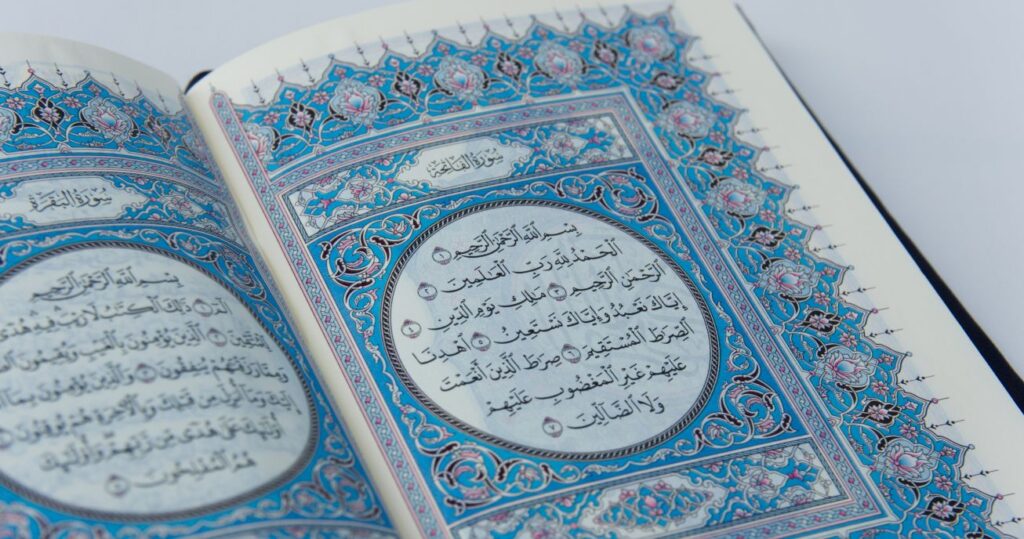 سُورَةُ الفَاتِحَةِ
بِسْمِ ٱللَّهِ ٱلرَّحْمَٰنِ ٱلرَّحِيمِ ١
ٱلْحَمْدُ لِلَّهِ رَبِّ ٱلْعَٰلَمِينَ ٢
ٱلرَّحْمَٰنِ ٱلرَّحِيمِ ٣ مَٰلِكِ يَوْمِ ٱلدِّينِ ٤
إِيَّاكَ نَعْبُدُ وَإِيَّاكَ نَسْتَعِينُ ٥ ٱهْدِنَا
ٱلصِّرَٰطَ ٱلْمُسْتَقِيمَ ٦ صِرَٰطَ ٱلَّذِينَ أَنْعَمْتَ
عَلَيْهِمْ غَيْرِ ٱلْمَغْضُوبِ عَلَيْهِمْ
وَلَا ٱلضَّآلِّينَ ٧
سُورَةُ البَقَرَةِ
بِسْمِ ٱللَّهِ ٱلرَّحْمَٰنِ ٱلرَّحِيمِ
الٓمٓ ١ ذَٰلِكَ ٱلْكِتَٰبُ لَا رَيْبَ فِيهِ هُدًى
لِّلْمُتَّقِينَ ٢ ٱلَّذِينَ يُؤْمِنُونَ بِٱلْغَيْبِ وَيُقِيمُونَ
وَمِمَّا رَزَقْنَٰهُمْ يُنفِقُونَ ٣ وَٱلَّذِينَ يُؤْمِنُونَ بِمَآ
إِلَيْكَ وَمَآ أُنزِلَ مِن قَبْلِكَ وَبِٱلْأٓخِرَةِ هُمْ يُوقِنُونَ
أُو۟لَٰٓئِكَ عَلَىٰ هُدًى مِّن رَّبِّهِمْ وَأُو۟لَٰٓئِكَ
هُمُ ٱلْمُفْلِحُونَ ٥